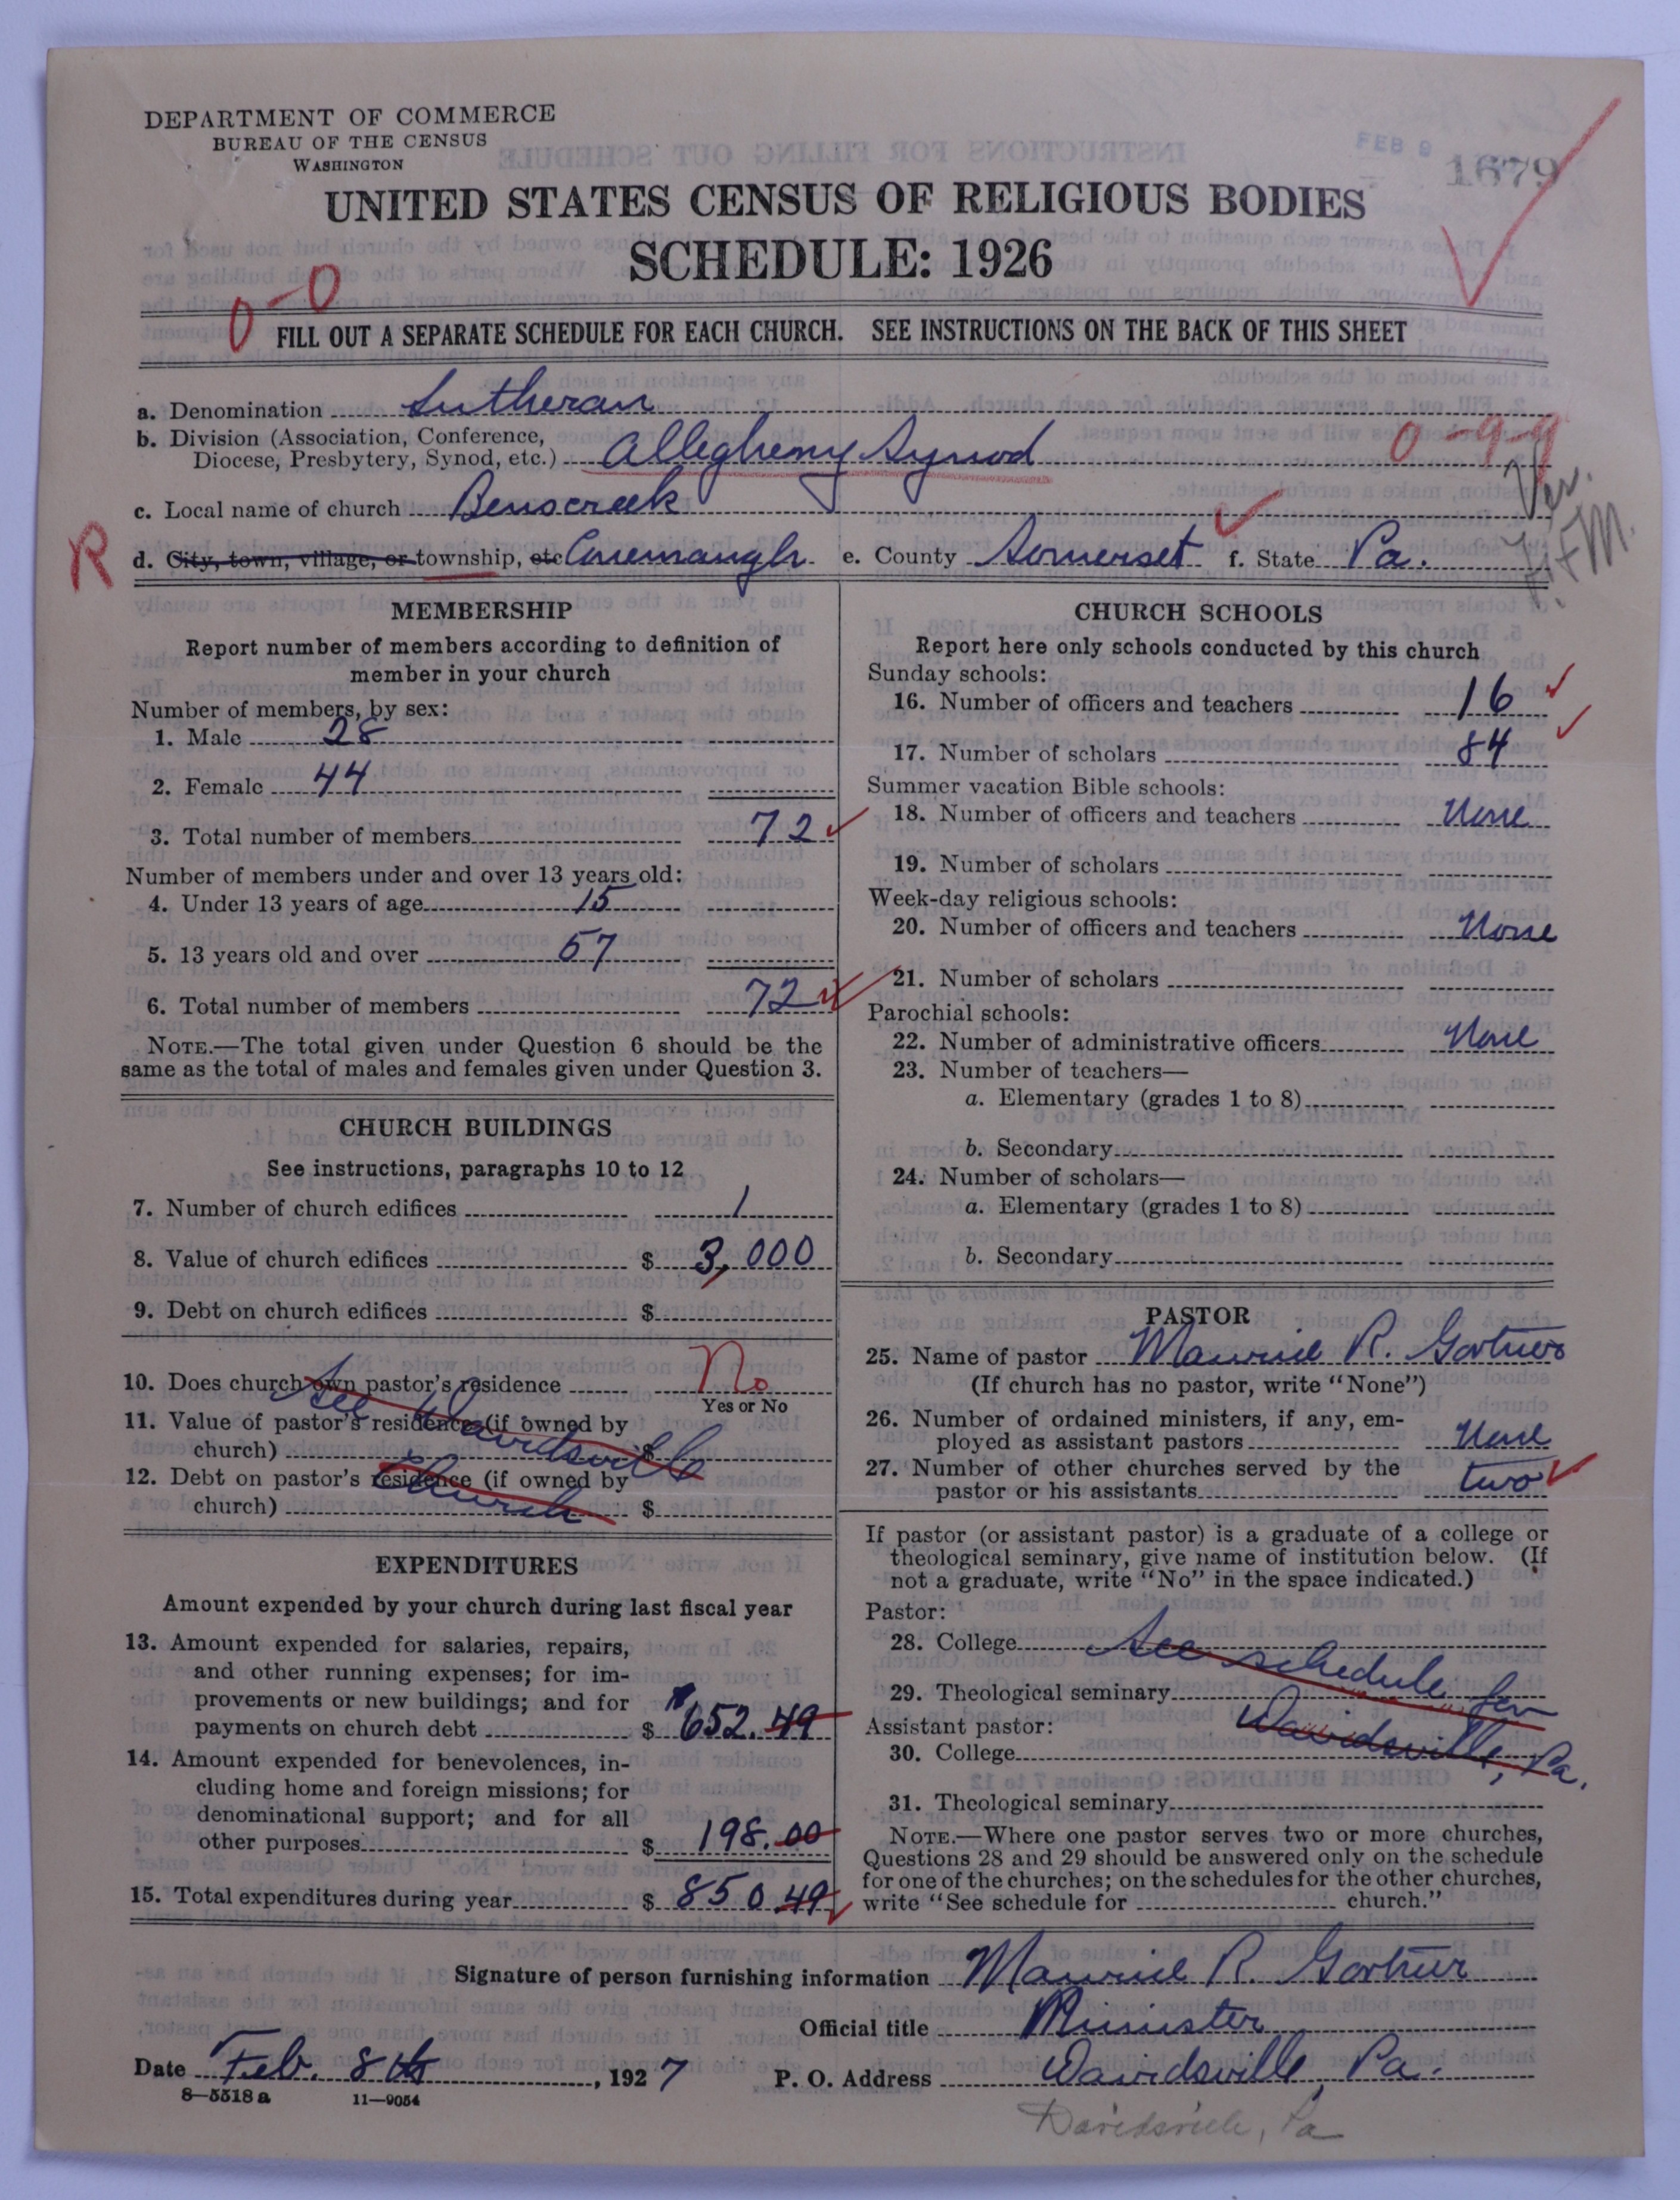 DEPARTMENT OF COMMERCE
BUREAU OF THE CENSUS
WASHINGTON
FEB 9
1679
UNITED STATES CENSUS OF RELIGIOUS BODIES
SCHEDULE: 1926
0-0
FILL OUT A SEPARATE SCHEDULE FOR EACH CHURCH. SEE INSTRUCTIONS ON THE BACK OF THIS SHEET
a. Denomination Lutheran
b. Division (Association, Conference,
Diocese, Presbytery, Synod, etc.) Allegheny Synod 0-9-9
Ver.
c. Local name of church Benscreek
R d. City, town, village, or township, etc Conemaugh e. County Somerset f. State Pa.
MEMBERSHIP
Report number of members according to definition of
member in your church
Number of members, by sex:
1. Male 28
2. Female 44
3. Total number of members 72
Number of members under and over 13 years old:
4. Under 13 years of age 15
5. 13 years old and over 57
6. Total number of members 72
NOTE.—The total given under Question 6 should be the
same as the total of males and females given under Question 3.
CHURCH BUILDINGS
See instructions, paragraphs 10 to 12
7. Number of church edifices 1
8. Value of church edifices $ 3,000
9. Debt on church edifices $
10. Does church own pastor's residence No
Yes or No
See Davidsville
11. Value of pastor's residence (if owned by
church) $
12. Debt on pastor's residence (if owned by
church) $
Church
EXPENDITURES
Amount expended by your church during last fiscal year
13. Amount expended for salaries, repairs,
and other running expenses; for im-
provements or new buildings; and for
payments on church debt $ 652.49
14. Amount expended for benevolences, in-
cluding home and foreign missions; for
denominational support; and for all
other purposes $ 198.00
15. Total expenditures during year $ 850.49
CHURCH SCHOOLS
Report here only schools conducted by this church
Sunday schools:
16. Number of officers and teachers 16
17. Number of scholars 84
Summer vacation Bible schools:
18. Number of officers and teachers None
19. Number of scholars
Week-day religious schools:
20. Number of officers and teachers None
21. Number of scholars
Parochial schools:
22. Number of administrative officers None
23. Number of teachers—
a. Elementary (grades 1 to 8)
b. Secondary
24. Number of scholars—
a. Elementary (grades 1 to 8)
b. Secondary
PASTOR
25. Name of pastor Maurice R. Gortner
(If church has no pastor, write "None")
26. Number of ordained ministers, if any, em-
ployed as assistant pastors None
27. Number of other churches served by the
pastor or his assistants two
If pastor (or assistant pastor) is a graduate of a college or
theological seminary, give name of institution below. (If
not a graduate, write "No" in the space indicated.)
Pastor:
28. College See schedule for
29. Theological seminary
Assistant pastor: Davidsville, Pa.
30. College
31. Theological seminary
NOTE.—Where one pastor serves two or more churches,
Questions 28 and 29 should be answered only on the schedule
for one of the churches; on the schedules for the other churches,
write "See schedule for church."
Signature of person furnishing information Maurice R. Gortner
Official title Minister
Date Feb. 8th, 1927 P. O. Address Davidsville, Pa.
8-5518 a 11-9054
Davidsville, Pa